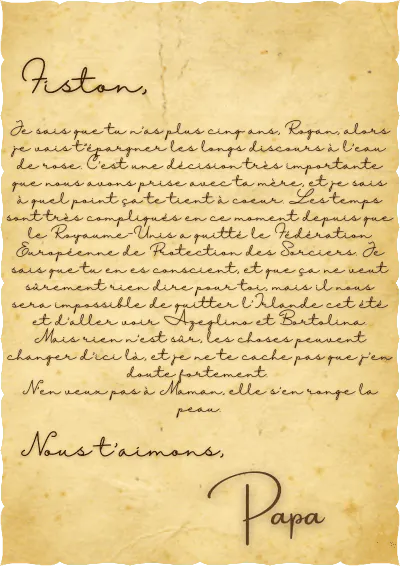 Fiston,
Je sais que tu n'as plus cinq ans, Rogan, alors
je vais t'épargner les longs discours à l'eau
de rose. C'est une décision très importante
que nous avons prise avec ta mère, et je sais
à quel point ça te tient à coeur. Les temps
sont très compliqués en ce moment depuis que
le Royaume-Unis a quitté le Fédération
Européenne de Protection des Sorciers. Je
sais que tu en es conscient, et que ça ne veut
sûrement rien dire pour toi, mais il nous
sera impossible de quitter l'Irlande cet été
et d'aller voir Azeglino et Bortolina.
Mais rien n'est sûr, les choses peuvent
changer d'ici là, et je ne te cache pas que j'en
doute fortement.
N'en veux pas à Maman, elle s'en ronge la
peau.
Nous t'aimons,
Papa